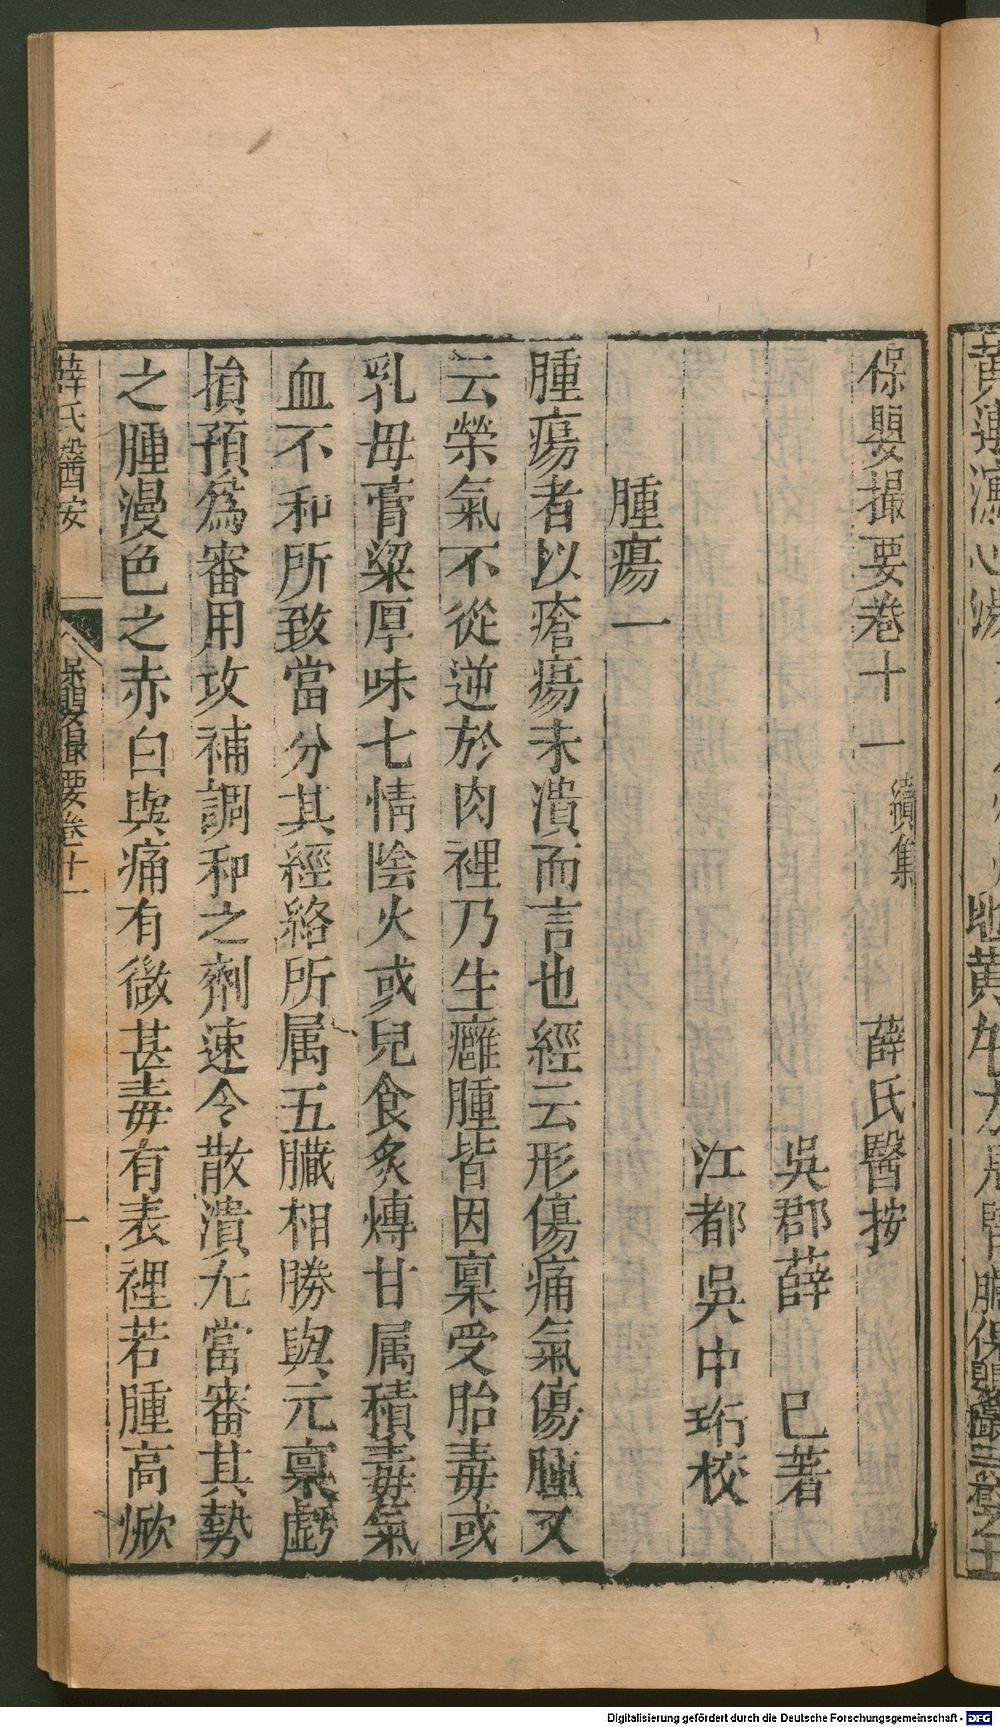 保嬰撮要卷十一 續集 薛氏醫按
吳郡薛 已著
江都吳中珩校
腫瘍一
腫瘍者以瘡瘍未潰而言也經云形傷痛氣傷腫又
云榮氣不從逆於肉裡乃生癰腫皆因稟受胎毒或
乳母膏粱厚味七情陰火或兒食炙煿甘属積毒氣
血不和所致當分其經絡所属五臟相勝與元稟虧
損預爲審用攻補調和之劑速令散潰尢當審其勢
之腫漫色之赤白與痛有微甚毒有表裡若腫高焮
薛氏醫按
保嬰撮要卷十一
一
Digitalisierung gefördert durch die Deutsche Forschungsgemeinschaft - DFG